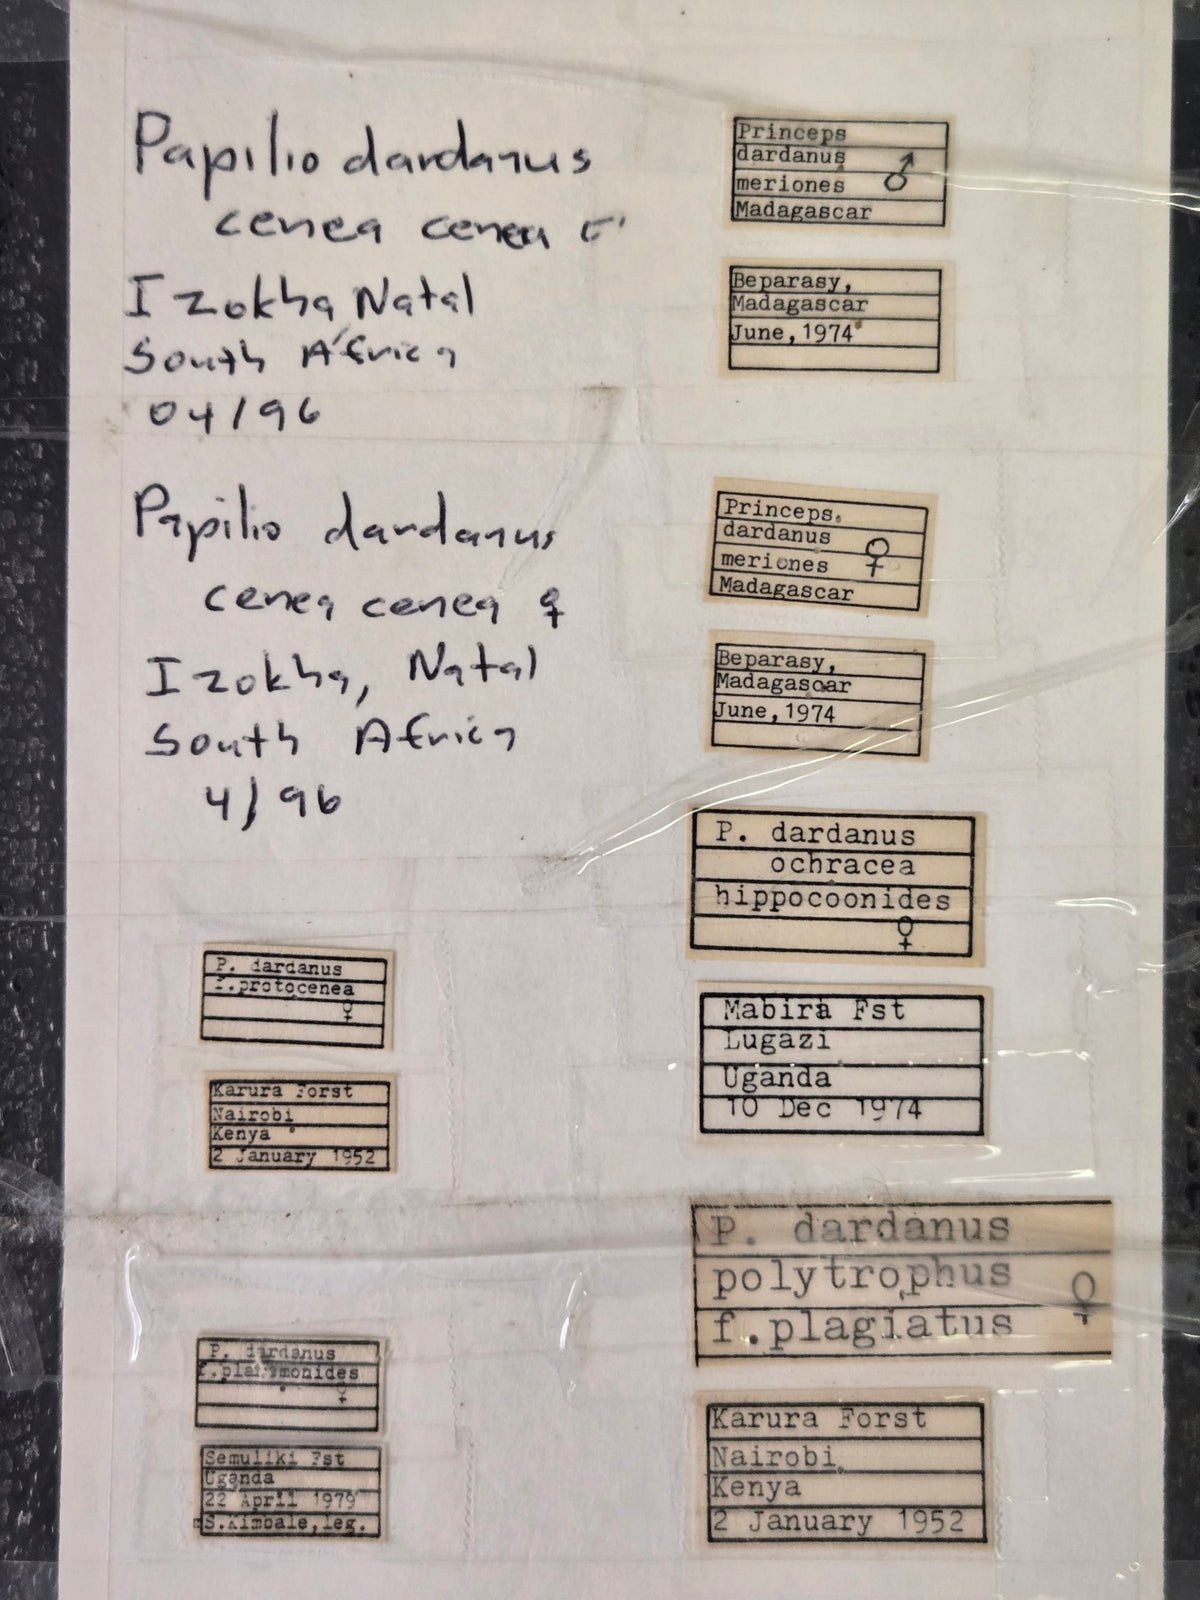 Papilio dardanus
cenea cenea
Izokha Natal
South Africa
04/96
Papilio dardanus
cenea cenea ♀
Izokha, Natal
South Africa
4/96
P. dardanus
f.protocenea
♀
Karura Forst
Nairobi
Kenya
2 January 1952
P. dardanus
♀
Semuliki Fst
Uganda
22 April 1979
leg.
Princeps
dardanus ♂
meriones
Madagascar
Beparasy,
Madagascar
June, 1974
Princeps.
dardanus ♀
meriones
Madagascar
Beparasy,
Madagascar
June, 1974
P. dardanus
ochracea
hippocoonides
♀
Mabira Fst
Lugazi
Uganda
10 Dec 1974
P. dardanus
polytrophus ♀
f.plagiatus
Karura Forst
Nairobi
Kenya
2 January 1952